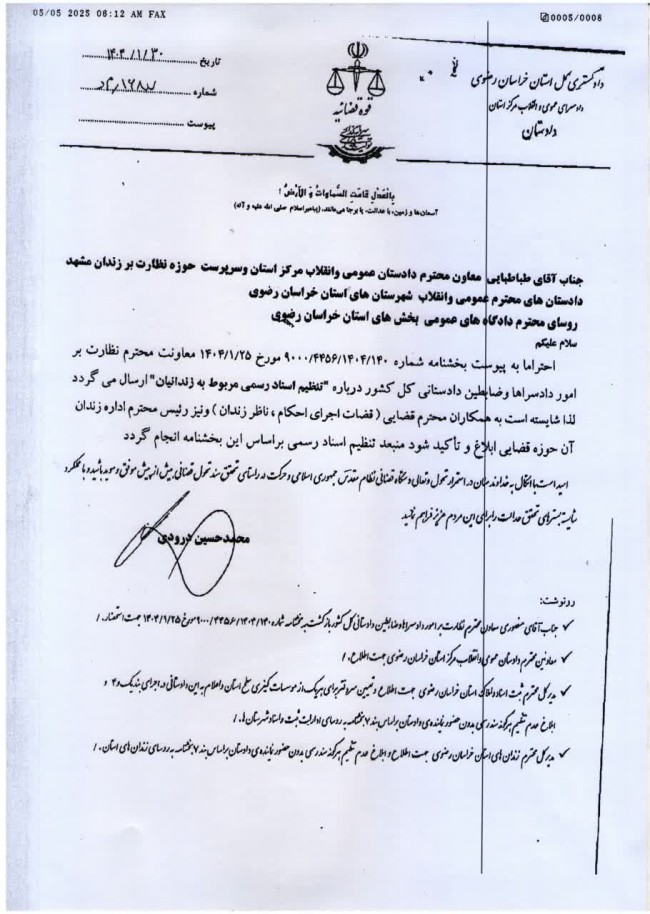 05/05 2025 06:12 AM FAX
0005/0006
دادگستری کل استان خراسان رضوی
دادسرای عمومی و انقلاب مرکز استان
دادستان
قوه قضائیه
تاریخ ۱۴۰۴/۱/۳۰
شماره
پیوست
بِالعَدلِ قامَتِ السَّماواتُ وَ الأَرضُ !
آسمان‌ها و زمین، با عدالت، پا برجا می‌مانند. (پیامبر اسلام صلی الله علیه و آله)
جناب آقای طباطبایی معاون محترم دادستان عمومی وانقلاب مرکز استان وسرپرست حوزه نظارت بر زندان مشهد
دادستان های محترم عمومی وانقلاب شهرستان های استان خراسان رضوی
روسای محترم دادگاه های عمومی بخش های استان خراسان رضوی
سلام علیکم
احتراما به پیوست بخشنامه شماره ۹۰۰۰/۴۴۵۶/۱۴۰۴/۱۴۰ مورخ ۱۴۰۴/۱/۲۵ معاونت محترم نظارت بر
امور دادسراها وضابطین دادستانی کل کشور درباره "تنظیم اسناد رسمی مربوط به زندانیان" ارسال می گردد
لذا شایسته است به همکاران محترم قضایی ( قضات اجرای احکام ، ناظر زندان ) ونیز رئیس محترم اداره زندان
آن حوزه قضایی ابلاغ و تأکید شود منبعد تنظیم اسناد رسمی براساس این بخشنامه انجام گردد
امید است با اتکال به خداوند منان در استمرار تحول و تعالی دستگاه قضائی نظام مقدس جمهوری اسلامی و حرکت در راستای تحقق سند تحول قضائی بیش از پیش موفق و موید باشید و با عملکرد
شایسته بسترهای تحقق عدالت را برای این مردم عزیز فراهم نمائید
محمدحسین درودی
رونوشت:
✓ جناب آقای منصوری معاون محترم نظارت بر امور دادسراها و ضابطین دادستانی کل کشور بازگشت به بخشنامه شماره ۹۰۰۰/۴۴۵۶/۱۴۰۴/۱۴۰ مورخ ۱۴۰۴/۱/۲۵ جهت استحضار. /
✓ معاونین محترم دادستان عمومی وانقلاب مرکز استان خراسان رضوی جهت اطلاع. /
✓ مدیر کل محترم ثبت اسناد واملاک استان خراسان رضوی جهت اطلاع و تعیین سردفتر برای هر یک از موسسات کیفری سطح استان واعلام به این دادستانی در اجرای بند یک و ۴ و
ابلاغ عدم تنظیم هرگونه سند رسمی بدون حضور نماینده ی دادستان براساس بند ۷ بخشنامه به روسای ادارات ثبت و اسناد شهرستان ها. /
✓ مدیر کل محترم زندان های استان خراسان رضوی جهت اطلاع و ابلاغ عدم تنظیم هرگونه سند رسمی بدون حضور نماینده ی دادستان براساس بند ۷ بخشنامه به روسای زندان های استان. /